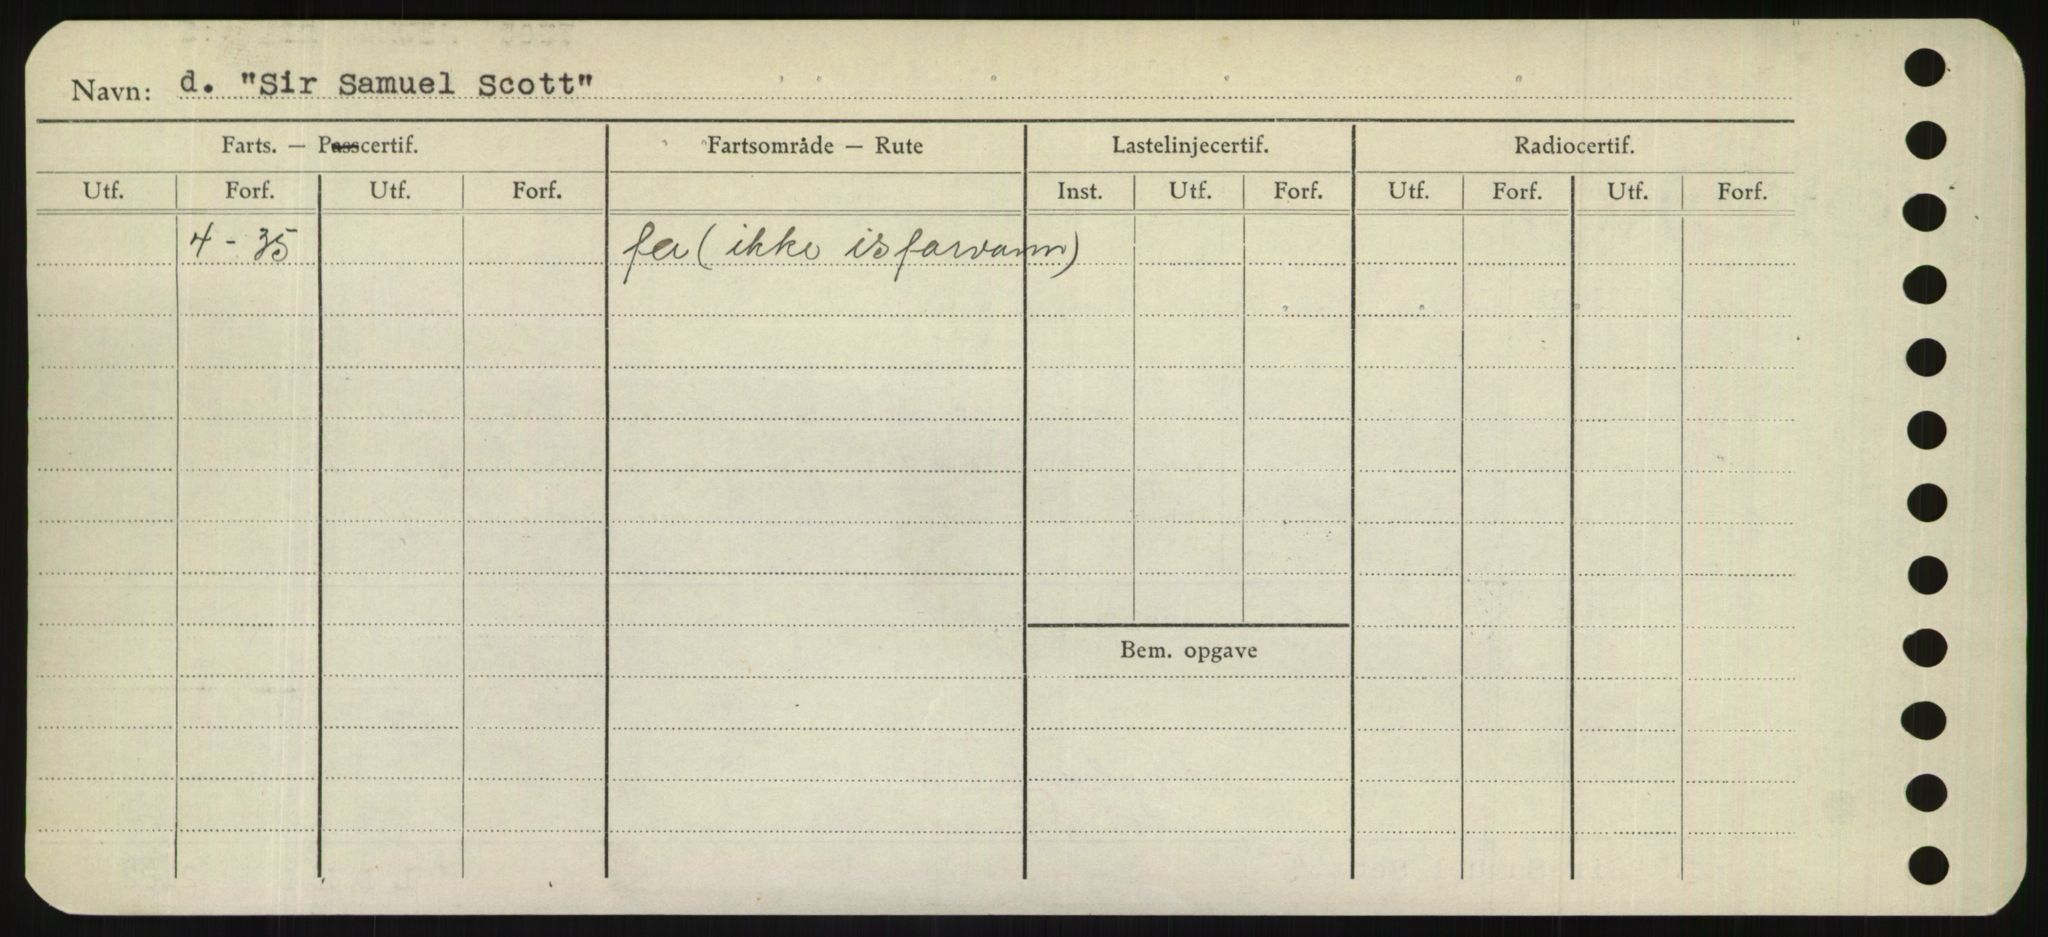 Navn: d. "Sir Samuel Scott"
Farts. — Passcertif. Fartsområde — Rute Lastelinjecertif. Radiocertif.
Utf. Forf. Utf. Forf. Inst. Utf. Forf. Utf. Forf. Utf. Forf.
4 - 35 (ikke isfarvann)
Bem. opgave